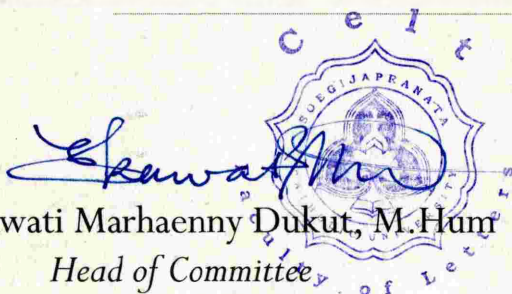 Celt
SOEGIJAPRANATA
wati Marhaenny Dukut, M.Hum
Head of Committee
Faculty of Letters